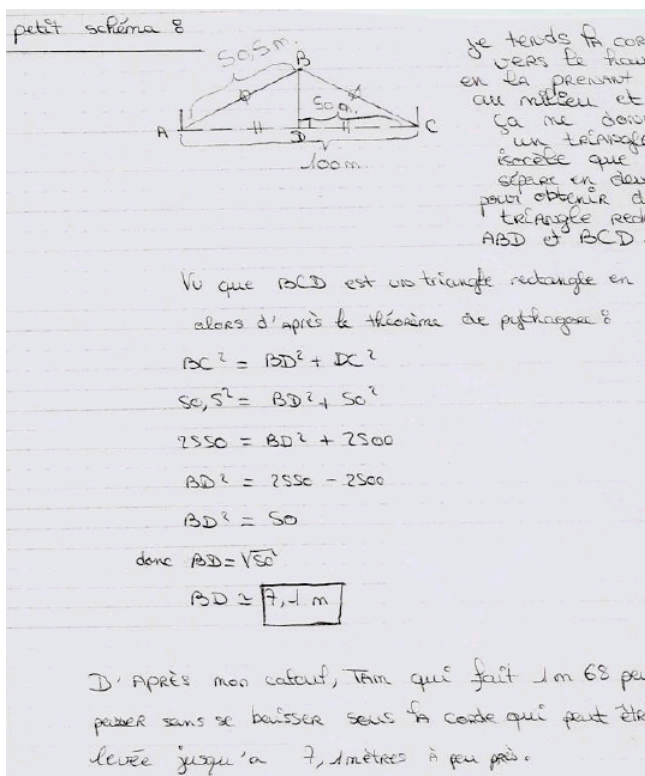 petit schéma :
50,5 m.
B
50 m.
A
D
C
100m.
je tends la cor
vers le hau
en la prenant
au milieu et
ça me don
un triangle
isocèle que
sépare en deu
pour obtenir d
triangle rec
ABD et BCD.
Vu que BCD est un triangle rectangle en
alors d'après le théorème de pythagore :
BC² = BD² + DC²
50,5² = BD² + 50²
2550 = BD² + 2500
BD² = 2550 - 2500
BD² = 50
donc BD = √50
BD ≃ 7,1 m
D'APRÈS mon calcul, Tam qui fait 1m 68 peu
passer sans se baisser sous la corde qui peut êtr
levée jusqu'a 7,1mètres à peu près.